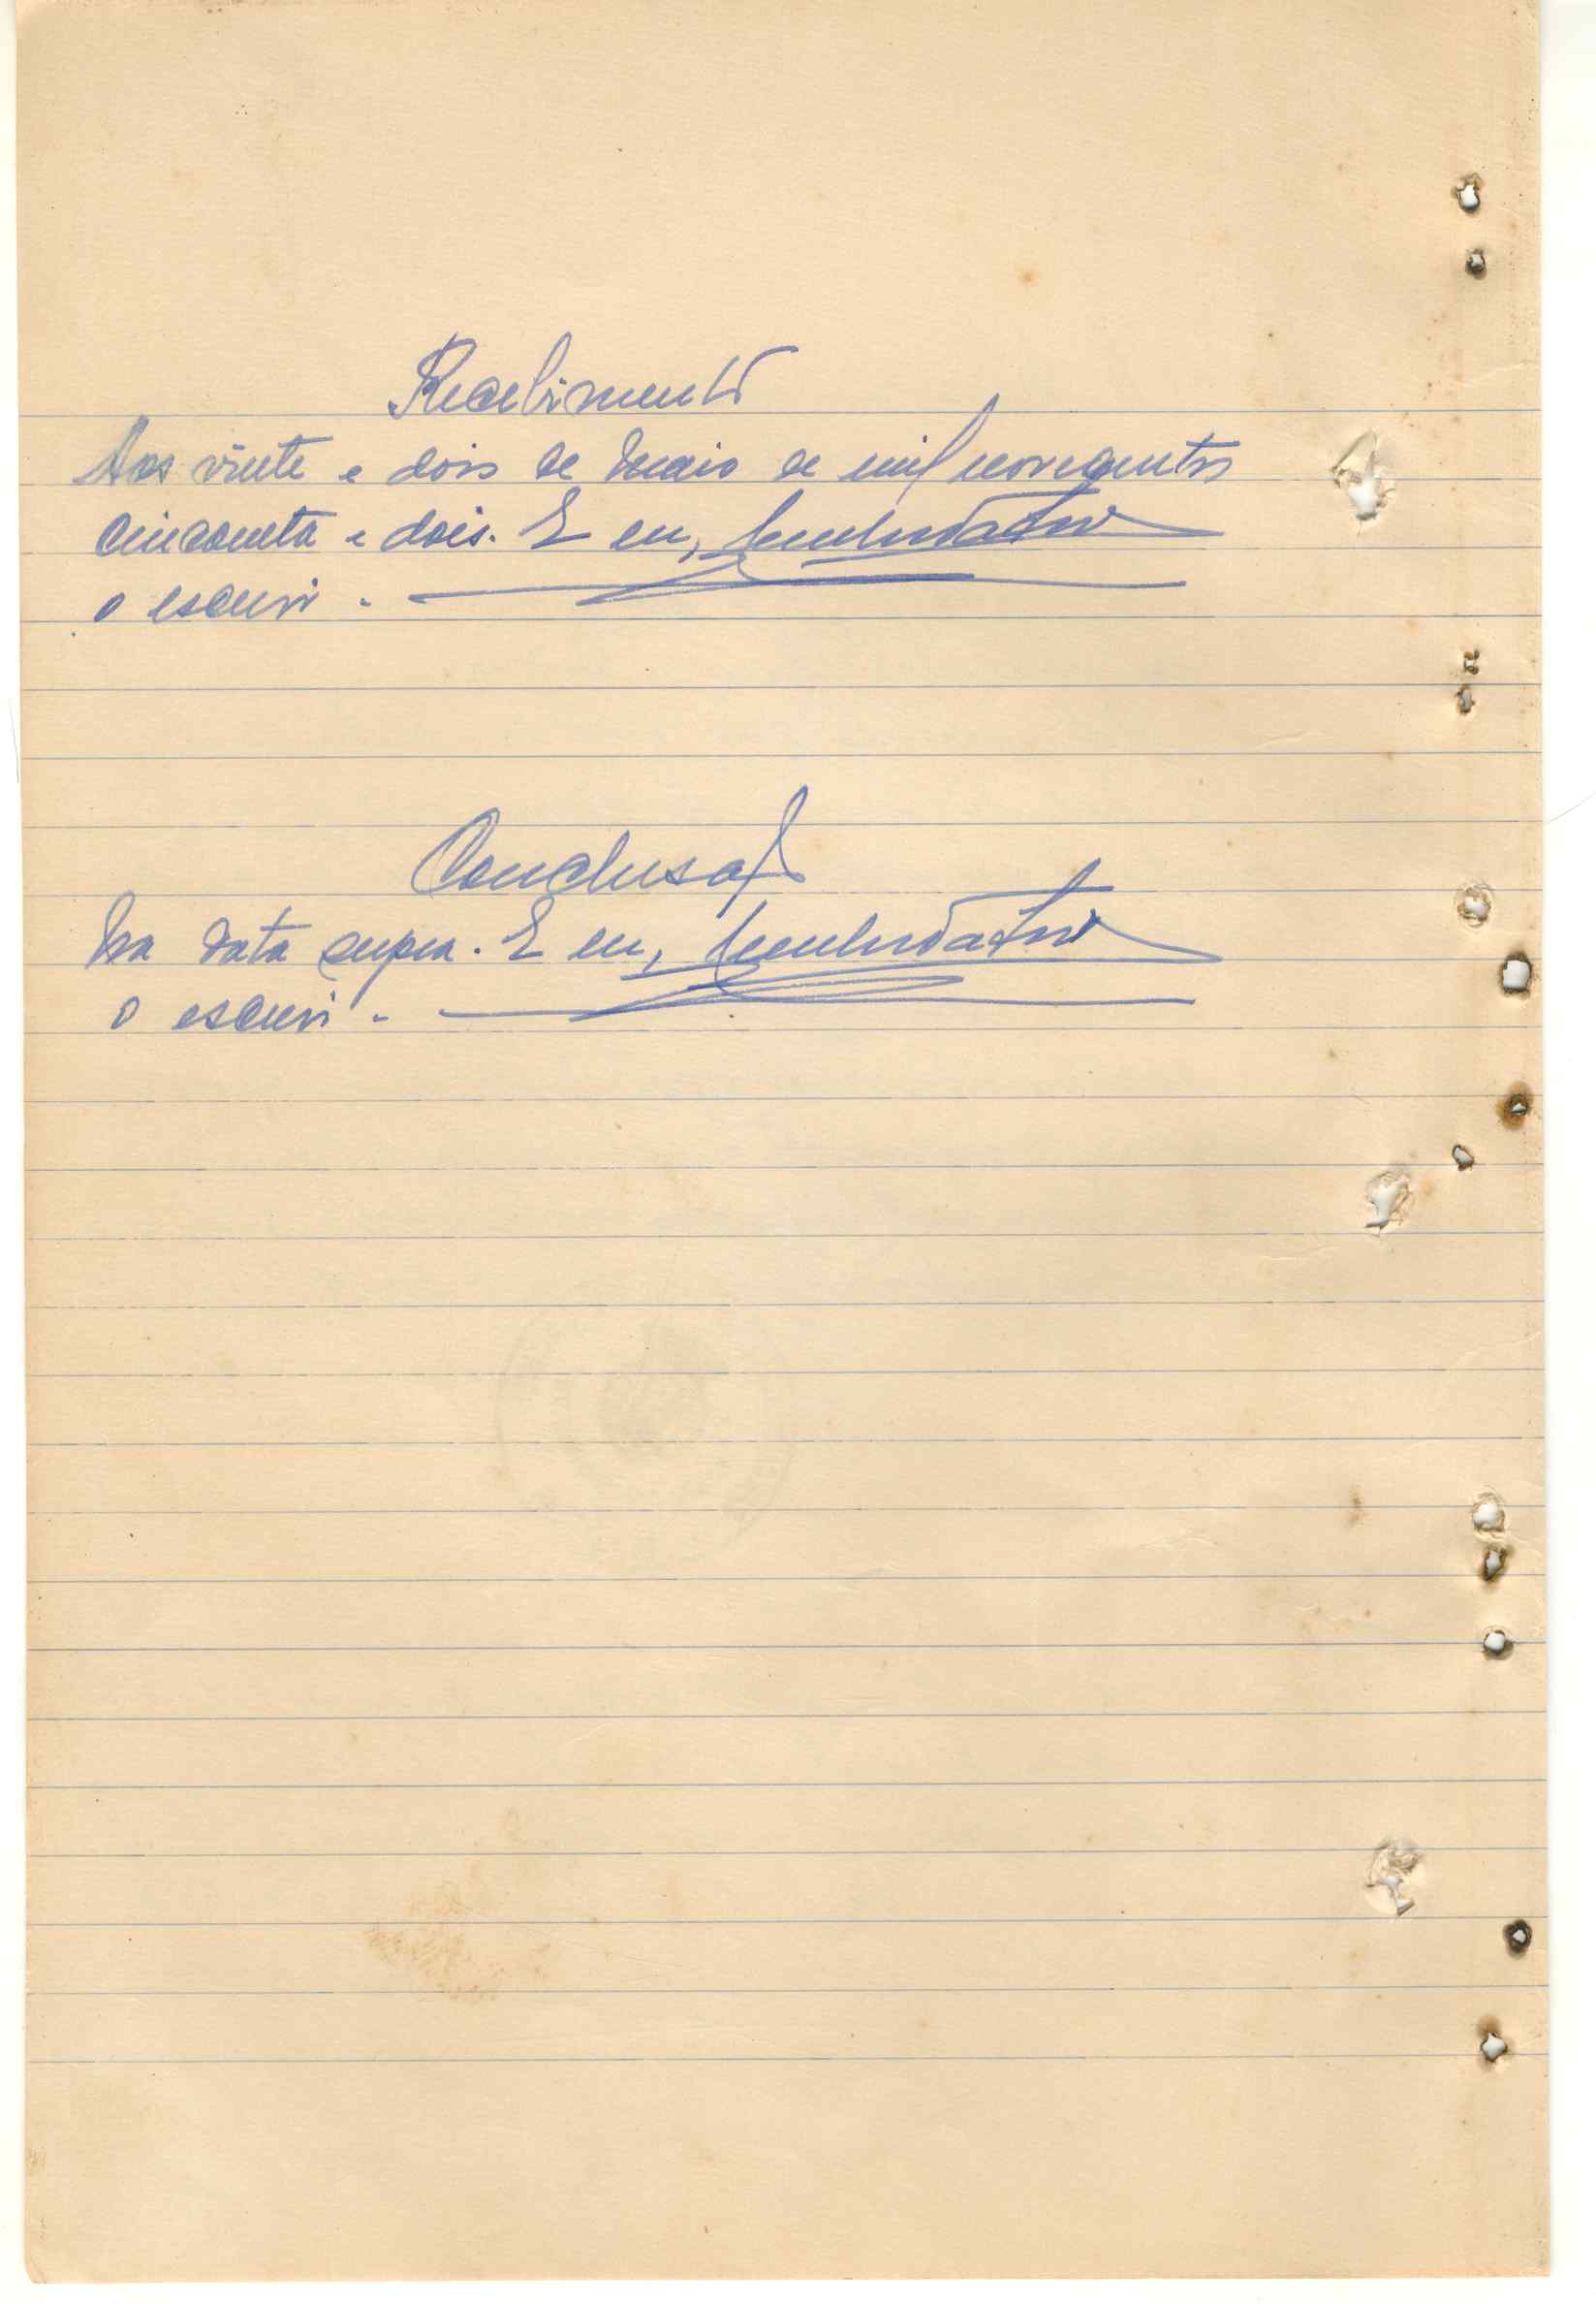 Recebimento
Aos vinte e dois de Maio de mil novecentos
cincoenta e dois. E eu,
o escrevi.
Conclusão
Na data supra. E eu,
o escrevi.